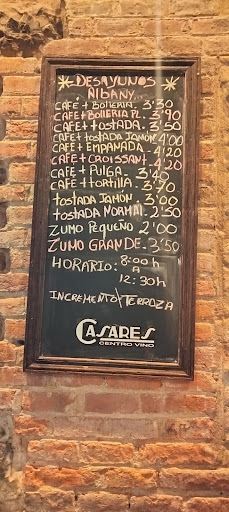 * DESAYUNOS *
ALBANY...
CAFÉ + BOLLERIA. 3'30
CAFE + BOLLERIA PL. 3'90
CAFE + tostada. 3'50
CAFE + tostada JAMÓN 4'00
CAFE + EMPANADA. 4'20
CAFE + CROISSANT. 4'20
CAFE + PULGA. 3'40
CAFE + tortilla. 3'70
tostada JAMÓN. 3'00
tostada NORMAL. 2'50
ZUMO PEQUEÑO 2'00
ZUMO GRANDE. 3'50
HORARIO: 8:00h
A
12:30h
INCREMENTO TERRAZA
CASARES
CENTRO VINO